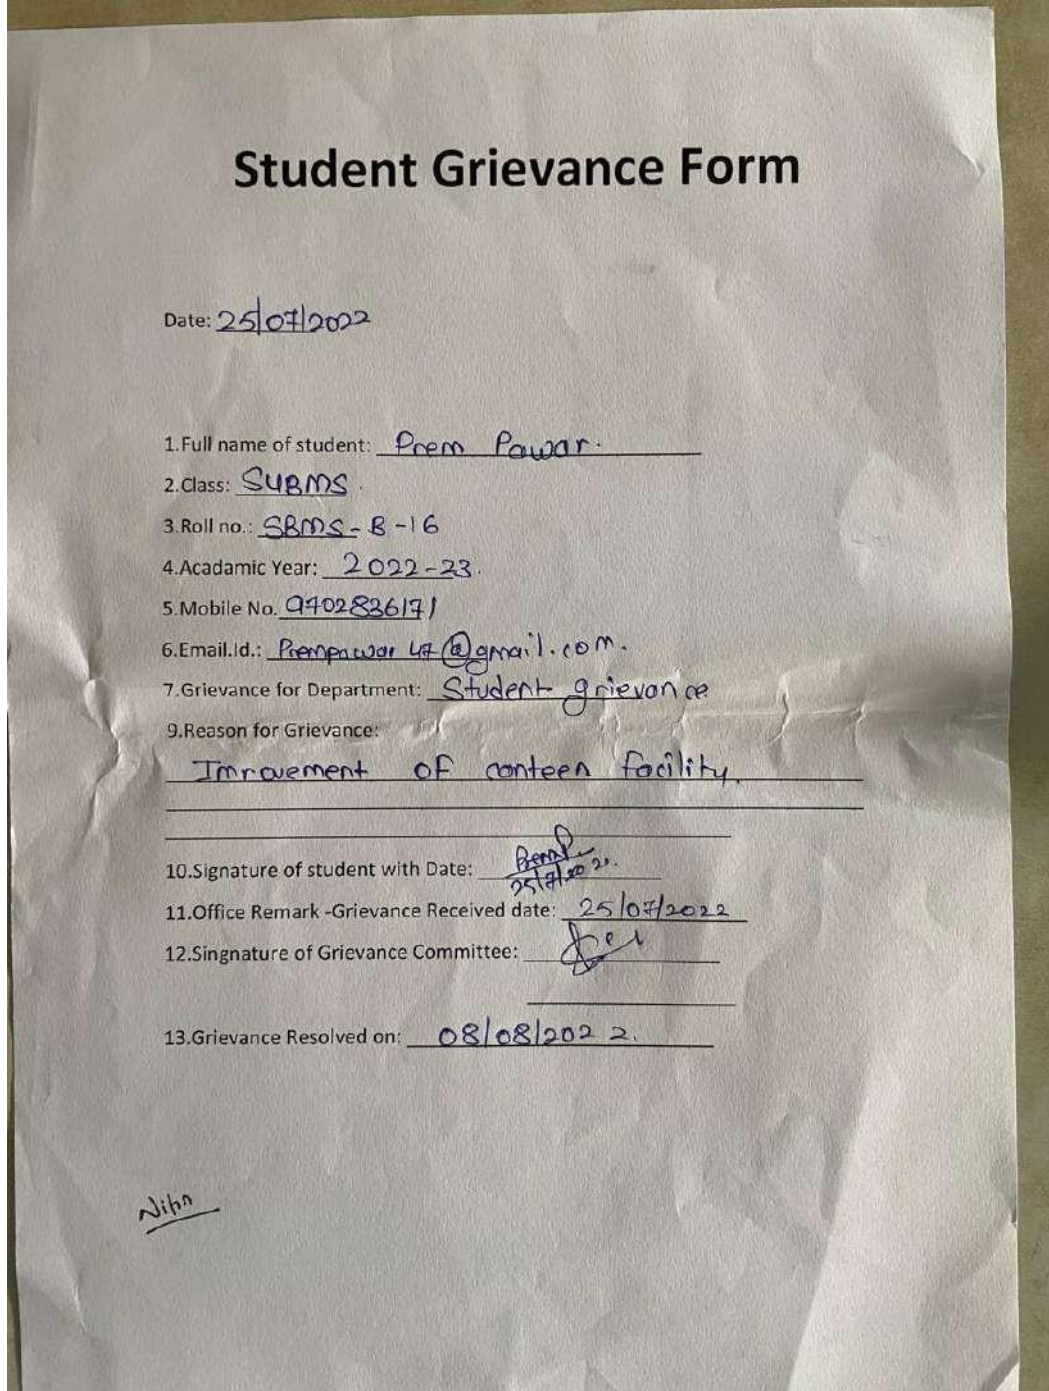 Student Grievance Form
Date: 25/07/2022
1.Full name of student: Prem Pawar.
2.Class: SYBMS.
3.Roll no.: SBMS-B-16
4.Acadamic Year: 2022-23.
5.Mobile No. 9702836171
6.Email.Id.: Prempawar47@gmail.com.
7.Grievance for Department: Student grievance
9.Reason for Grievance:
Imrovement of canteen facility.
10.Signature of student with Date:
11.Office Remark -Grievance Received date: 25/07/2022
12.Singnature of Grievance Committee:
13.Grievance Resolved on: 08/08/2022.